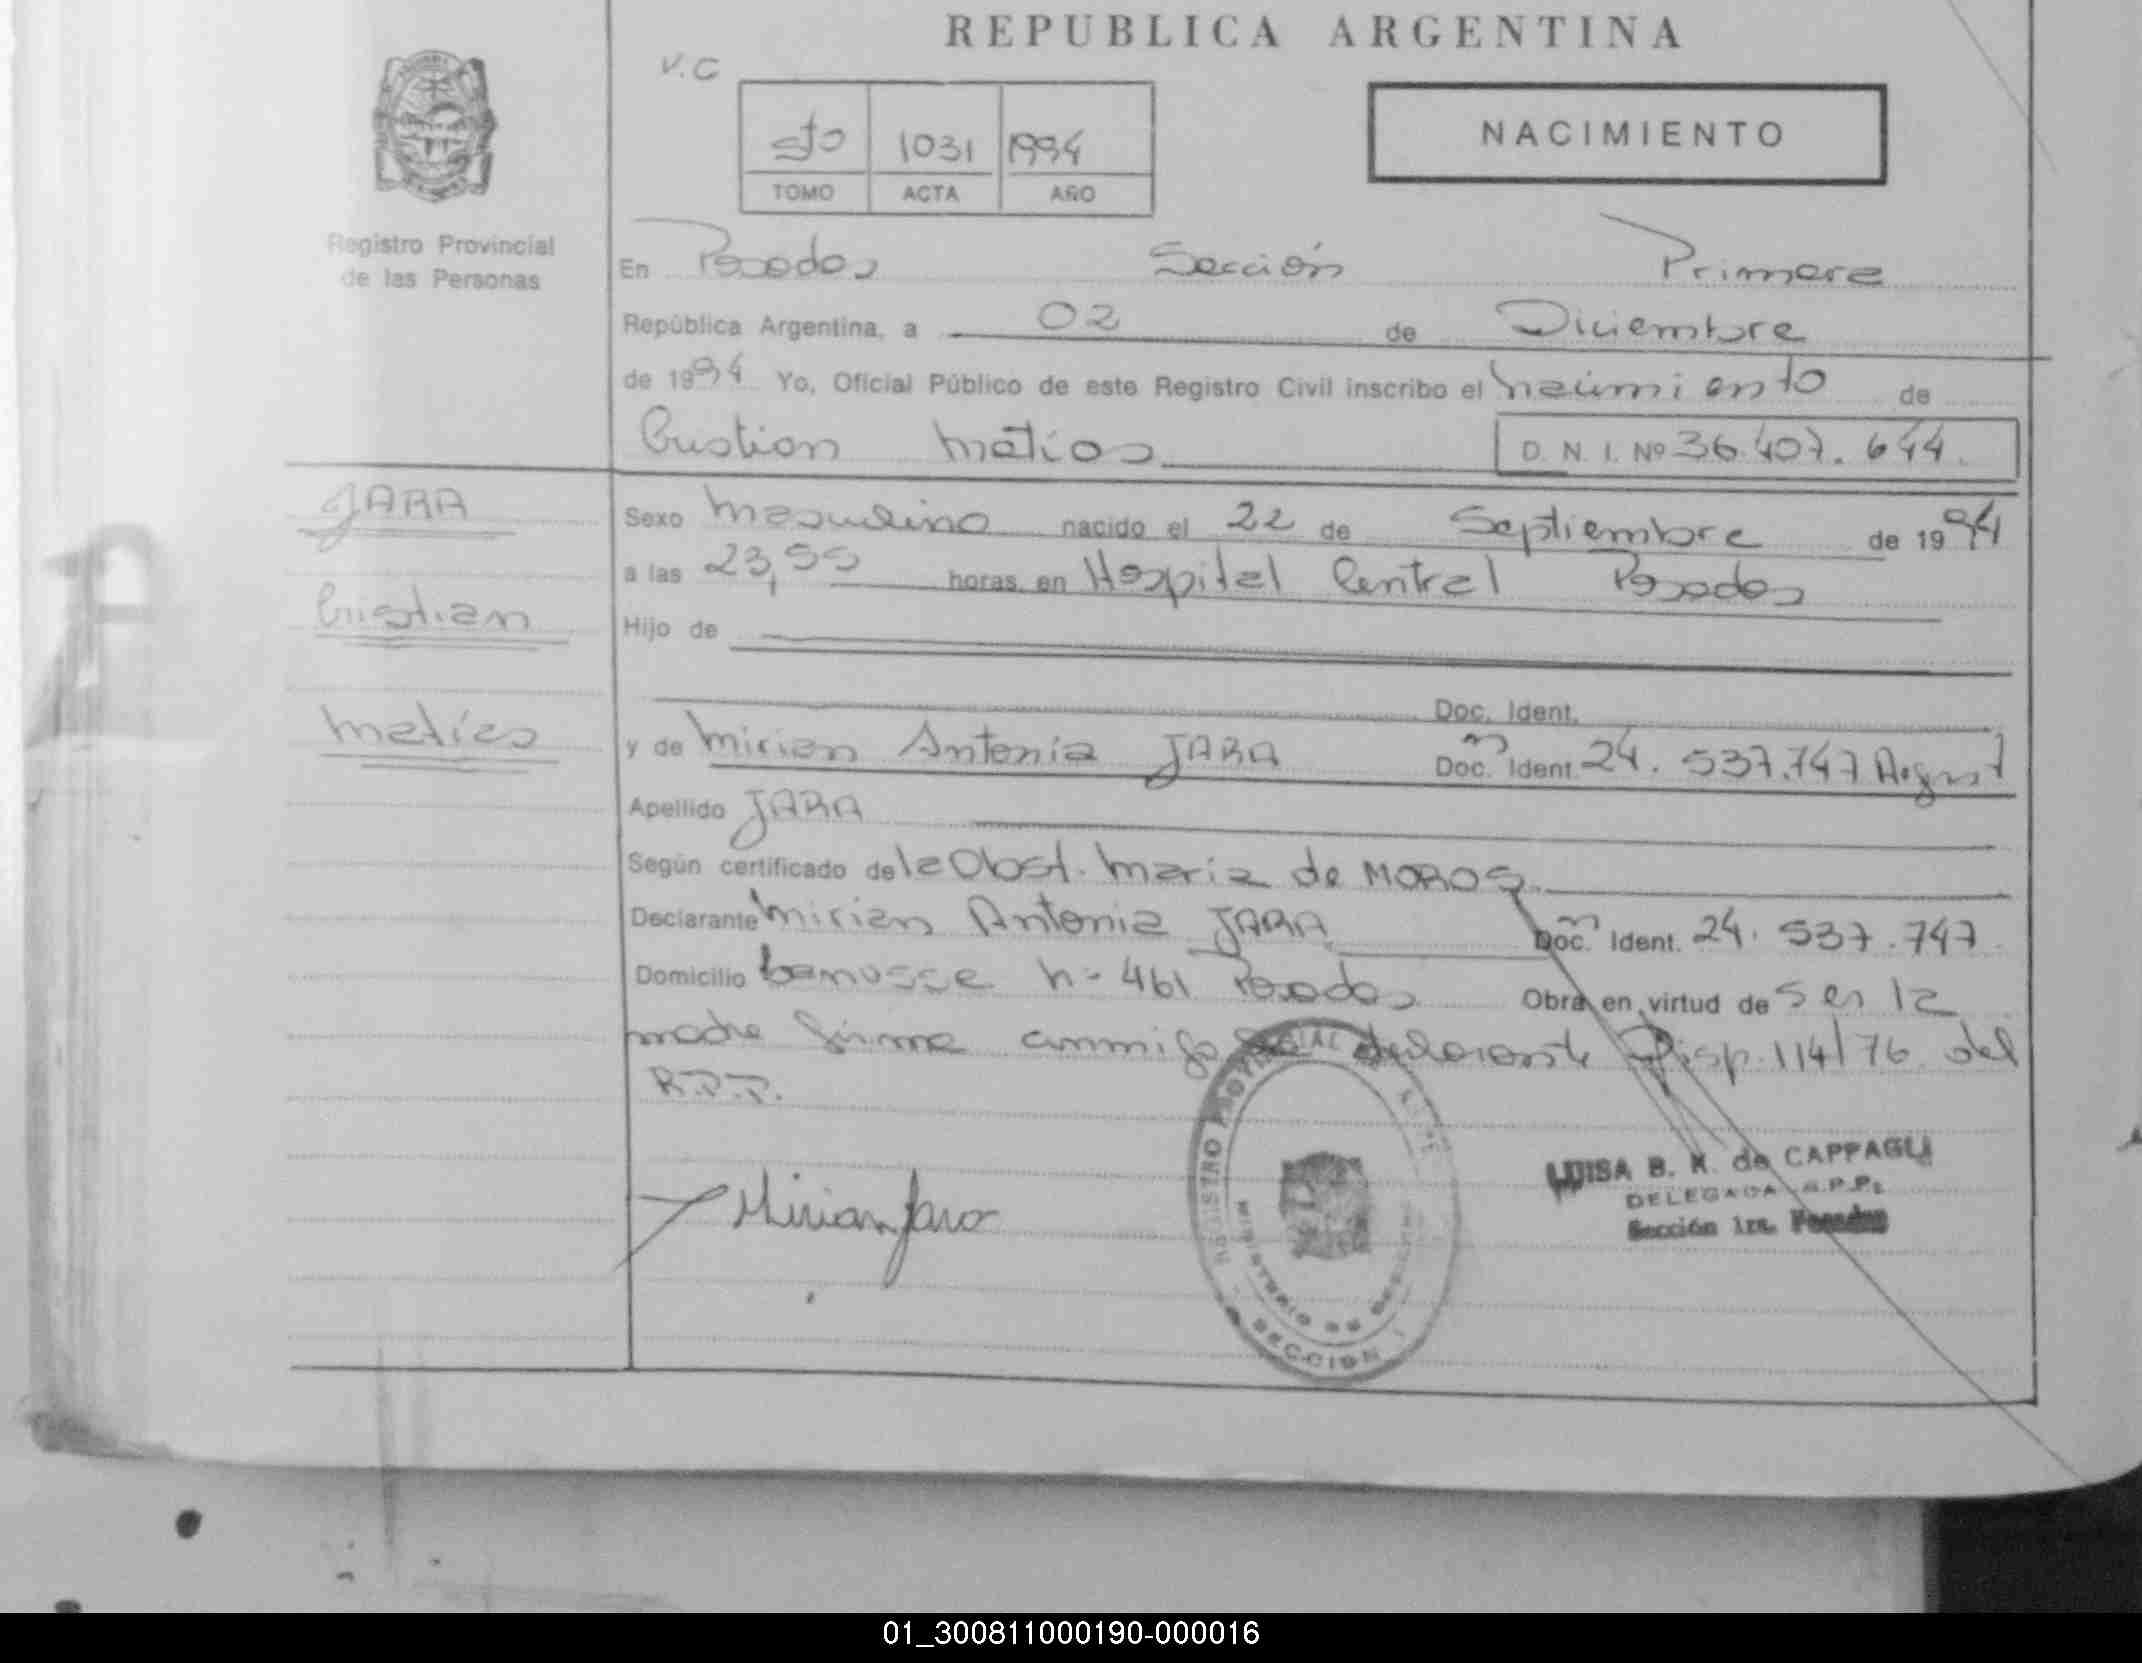 REPUBLICA ARGENTINA
V.C
5to 1031 1994
TOMO ACTA AÑO
NACIMIENTO
Registro Provincial
de las Personas
En Posadas Sección Primera
República Argentina, a 02 de Diciembre
de 1994 Yo, Oficial Público de este Registro Civil inscribo el nacimiento de
Cristian Matías D. N. I. Nº 36.407.644.
JARA
Cristian
Matías
Sexo Masculino nacido el 22 de Septiembre de 1994
a las 23,55 horas en Hospital Central Posadas
Hijo de
Doc. Ident.
y de Mirian Antonia JARA Doc. Ident. 24.537.747 Argent
Apellido JARA
Según certificado de la Obst. María de MOROS.
Declarante Mirian Antonia JARA Doc. Ident. 24.537.747.
Domicilio n- 461 Posadas Obra en virtud de ser la
madre firma conmigo declarante Disp. 114/76 del
R.P.P.
Mirian Jara
REGISTRO PROVINCIAL
MINISTERIO DE
SECCION 1
LUISA B. M. de CAPPAGLI
DELEGADA R.P.P.
Sección 1ra. Posadas
01_300811000190-000016